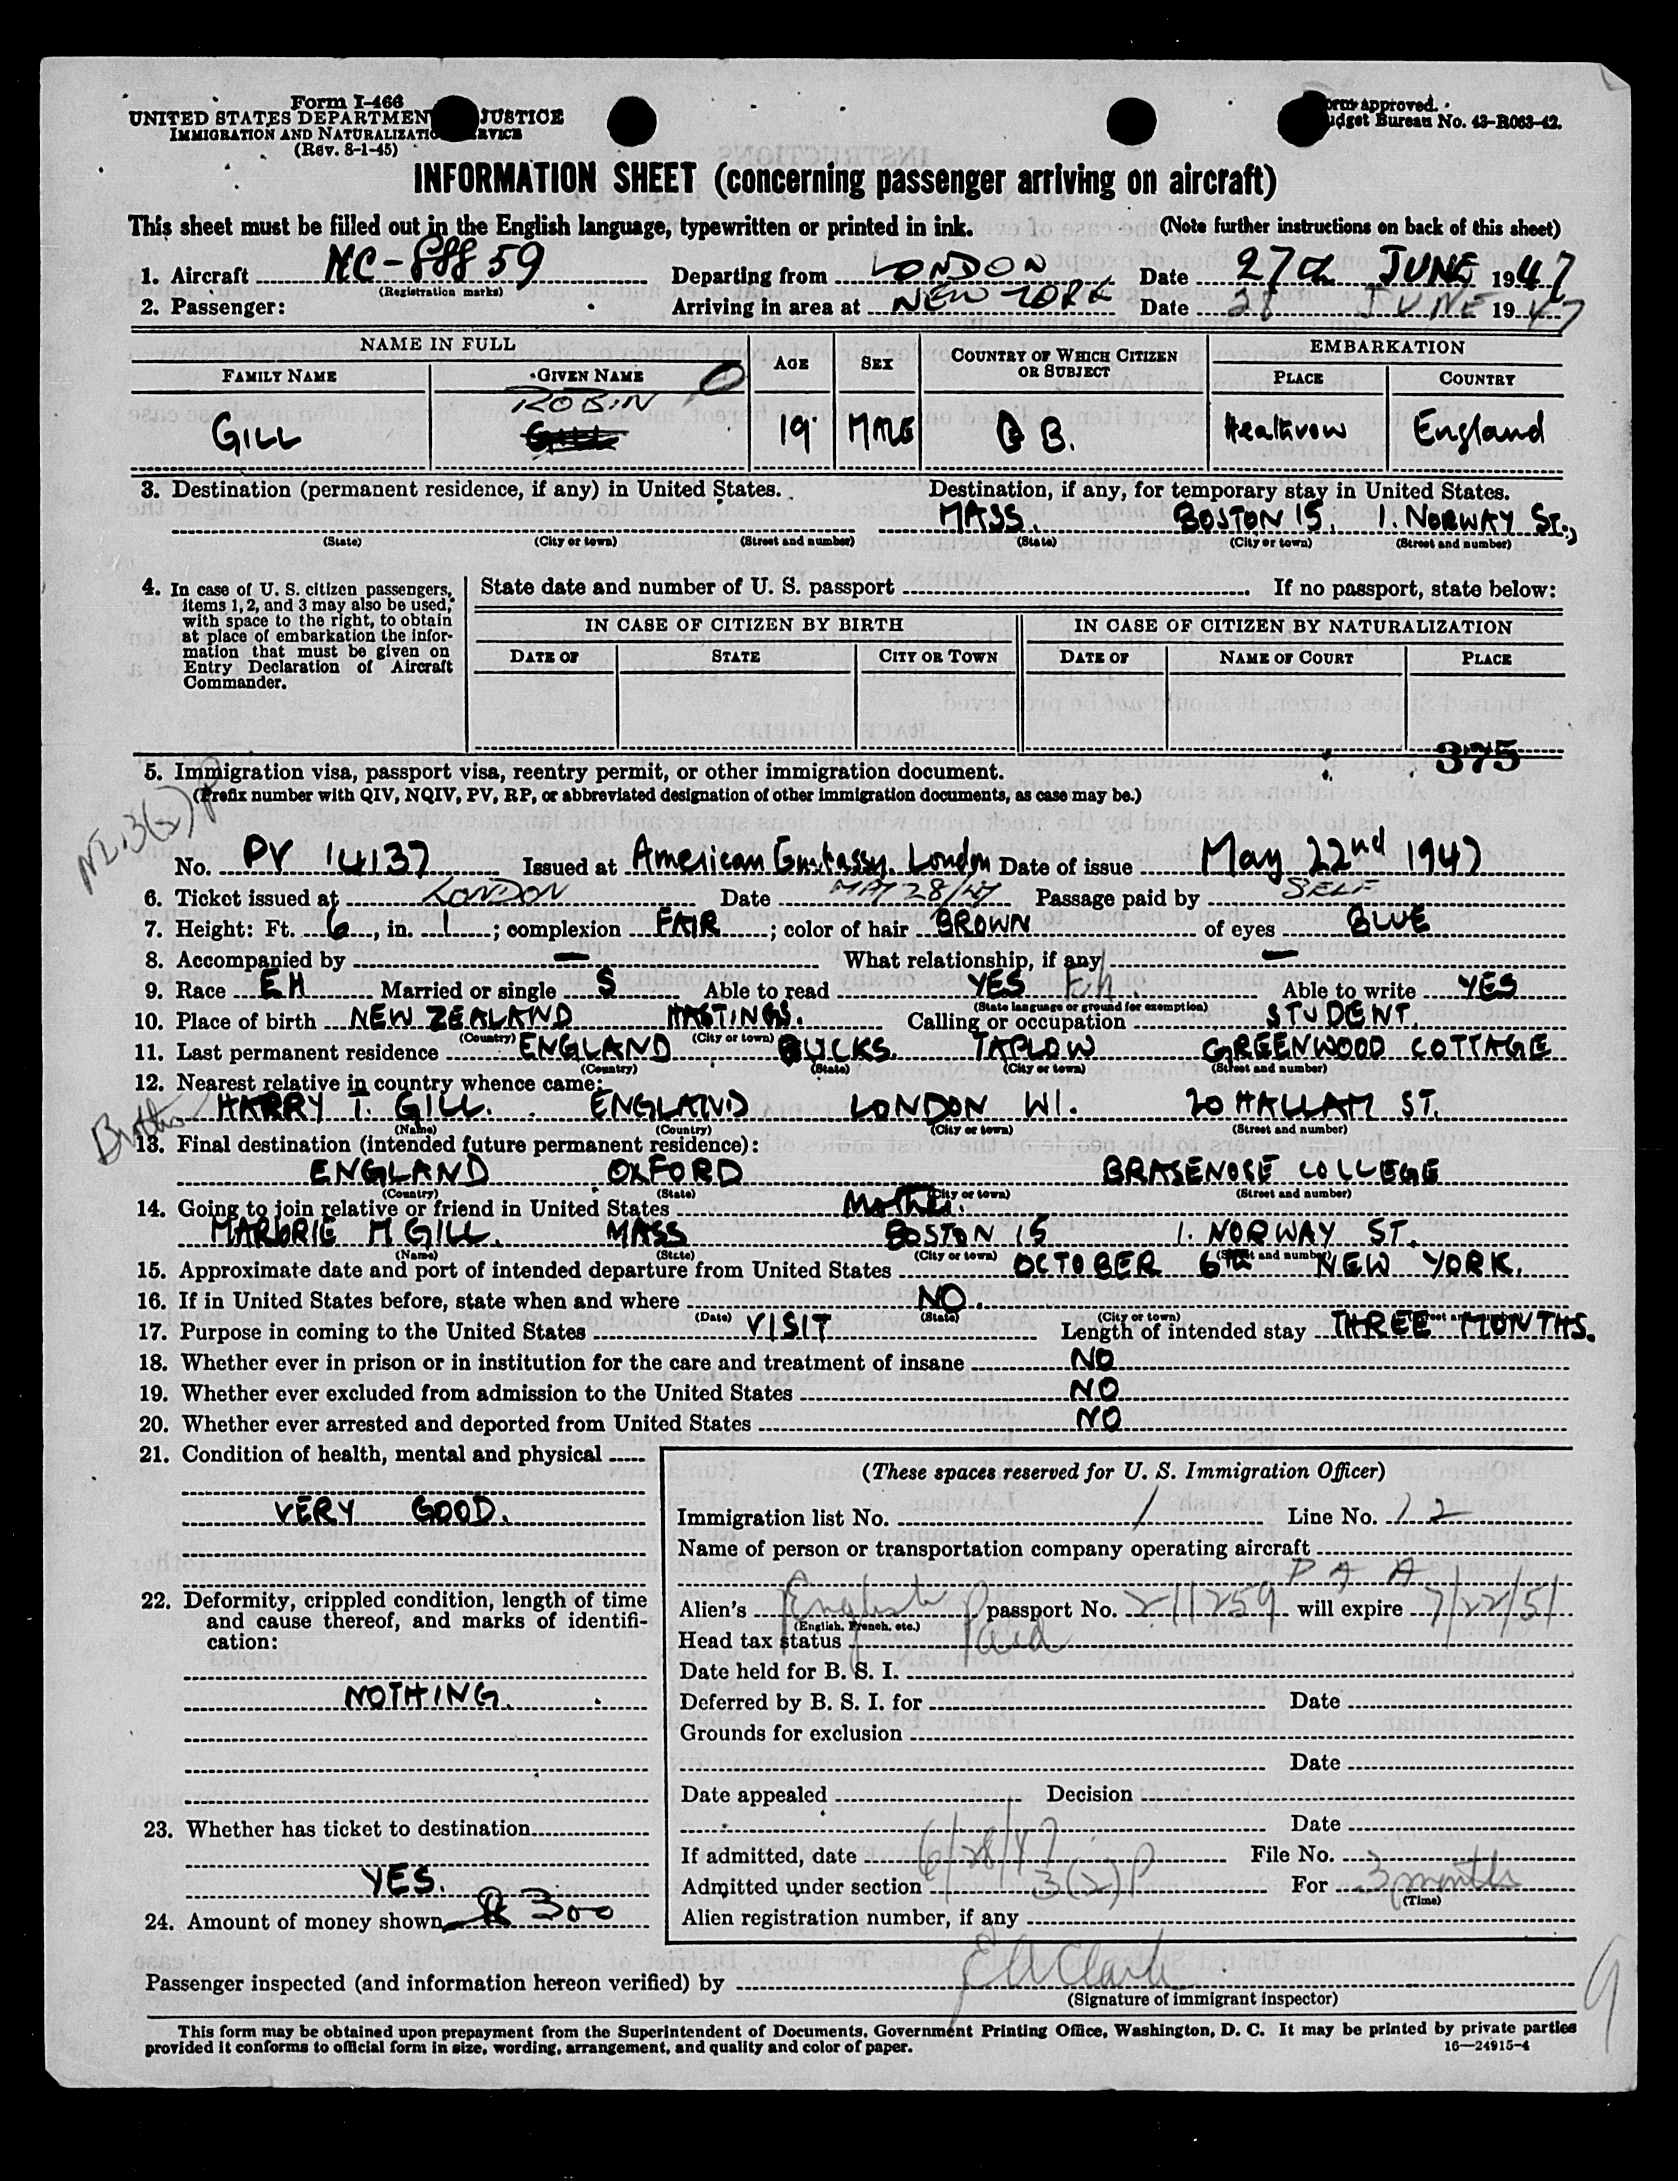 Form I-466
UNITED STATES DEPARTMENT JUSTICE
IMMIGRATION AND NATURALIZATION SERVICE
(Rev. 8-1-45)
Form approved.
Budget Bureau No. 43-R063-42.
INFORMATION SHEET (concerning passenger arriving on aircraft)
This sheet must be filled out in the English language, typewritten or printed in ink. (Note further instructions on back of this sheet)
1. Aircraft NC-88859 Departing from LONDON Date 27th JUNE 1947
(Registration marks)
2. Passenger: Arriving in area at NEW YORK Date 28 JUNE 1947
NAME IN FULL AGE SEX COUNTRY OF WHICH CITIZEN OR SUBJECT EMBARKATION
FAMILY NAME GIVEN NAME PLACE COUNTRY
ROBIN
GILL 19 MALE G B. Heathrow England
3. Destination (permanent residence, if any) in United States. Destination, if any, for temporary stay in United States.
MASS. BOSTON 15. 1. NORWAY ST.,
(State) (City or town) (Street and number) (State) (City or town) (Street and number)
4. In case of U. S. citizen passengers, items 1, 2, and 3 may also be used, with space to the right, to obtain at place of embarkation the information that must be given on Entry Declaration of Aircraft Commander.
State date and number of U. S. passport If no passport, state below:
IN CASE OF CITIZEN BY BIRTH IN CASE OF CITIZEN BY NATURALIZATION
DATE OF STATE CITY OR TOWN DATE OF NAME OF COURT PLACE
375
5. Immigration visa, passport visa, reentry permit, or other immigration document.
(Prefix number with QIV, NQIV, PV, RP, or abbreviated designation of other immigration documents, as case may be.)
No. PV 14137 Issued at American Embassy, London Date of issue May 22nd 1947
6. Ticket issued at LONDON Date MAY 28/47 Passage paid by SELF
7. Height: Ft. 6, in. 1; complexion FAIR; color of hair BROWN of eyes BLUE
8. Accompanied by — What relationship, if any —
9. Race EH Married or single S Able to read YES Eh. Able to write YES
(State language or ground for exemption)
10. Place of birth NEW ZEALAND HASTINGS. Calling or occupation STUDENT.
(Country) (City or town)
11. Last permanent residence ENGLAND BUCKS. TAPLOW GREENWOOD COTTAGE
(Country) (State) (City or town) (Street and number)
12. Nearest relative in country whence came:
Brother HARRY T. GILL. ENGLAND LONDON W1. 20 HALLAM ST.
(Name) (Country) (City or town) (Street and number)
13. Final destination (intended future permanent residence):
ENGLAND OXFORD BRASENOSE COLLEGE
(Country) (State) (City or town) (Street and number)
14. Going to join relative or friend in United States Mother.
MARJORIE M GILL. MASS BOSTON 15 1. NORWAY ST.
(Name) (State) (City or town) (Street and number)
15. Approximate date and port of intended departure from United States OCTOBER 6th NEW YORK.
16. If in United States before, state when and where NO.
(Date) (State) (City or town) (Street and number)
17. Purpose in coming to the United States VISIT Length of intended stay THREE MONTHS.
18. Whether ever in prison or in institution for the care and treatment of insane NO
19. Whether ever excluded from admission to the United States NO
20. Whether ever arrested and deported from United States NO
21. Condition of health, mental and physical
VERY GOOD.
22. Deformity, crippled condition, length of time and cause thereof, and marks of identification:
NOTHING.
23. Whether has ticket to destination
YES.
24. Amount of money shown $ 300
(These spaces reserved for U. S. Immigration Officer)
Immigration list No. 1 Line No. 12
Name of person or transportation company operating aircraft
P A A
Alien's English passport No. 211259 will expire 7/22/51
(English, French, etc.)
Head tax status Paid
Date held for B. S. I.
Deferred by B. S. I. for Date
Grounds for exclusion
Date
Date appealed Decision
Date
If admitted, date 6/28/47 File No.
Admitted under section 3(2)P For 3 months
(Time)
Alien registration number, if any
Passenger inspected (and information hereon verified) by E A Clark
(Signature of immigrant inspector)
9
This form may be obtained upon prepayment from the Superintendent of Documents, Government Printing Office, Washington, D. C. It may be printed by private parties
provided it conforms to official form in size, wording, arrangement, and quality and color of paper. 16—24915-4